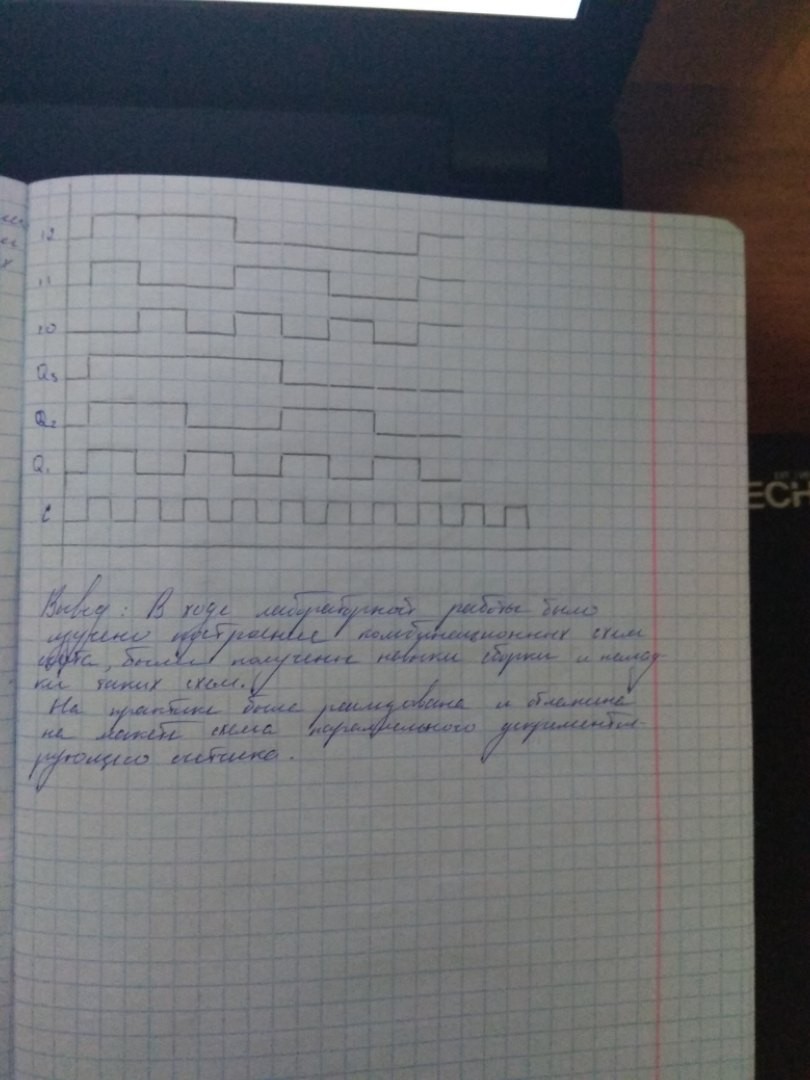 Q₃
Q₂
Q₁
C
Вывод: В ходе лабораторной работы было
изучено построение комбинационных схем
счёта, были получены навыки сборки и налад-
ки таких схем.
На практике была реализована и отлажена
на макете схема параллельного
счетчика.
ECH